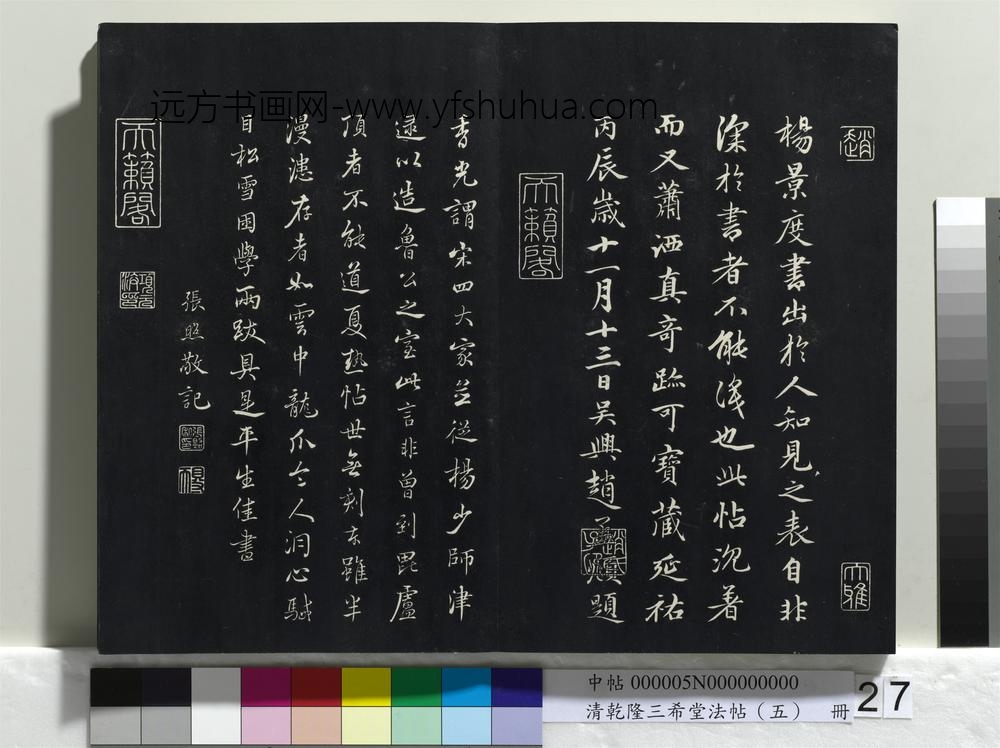 远方书画网-www.yfshuhua.com
趙
大雅
楊景度書出於人知見之表自非
深於書者不能識也此帖沉著
而又蕭洒真奇跡可寶藏延祐
丙辰歲十一月十三日吳興趙孟頫題
天籟閣
香光謂宋四大家並從楊少師津
逮以造魯公之室此言非曾到毘盧
頂者不能道夏熱帖世無刻本雖半
漫漶存者如雲中龍爪令人洞心駴
目松雪困學兩跋具是平生佳書
張照敬記
天籟閣
中帖 000005N000000000
清乾隆三希堂法帖（五） 冊
27